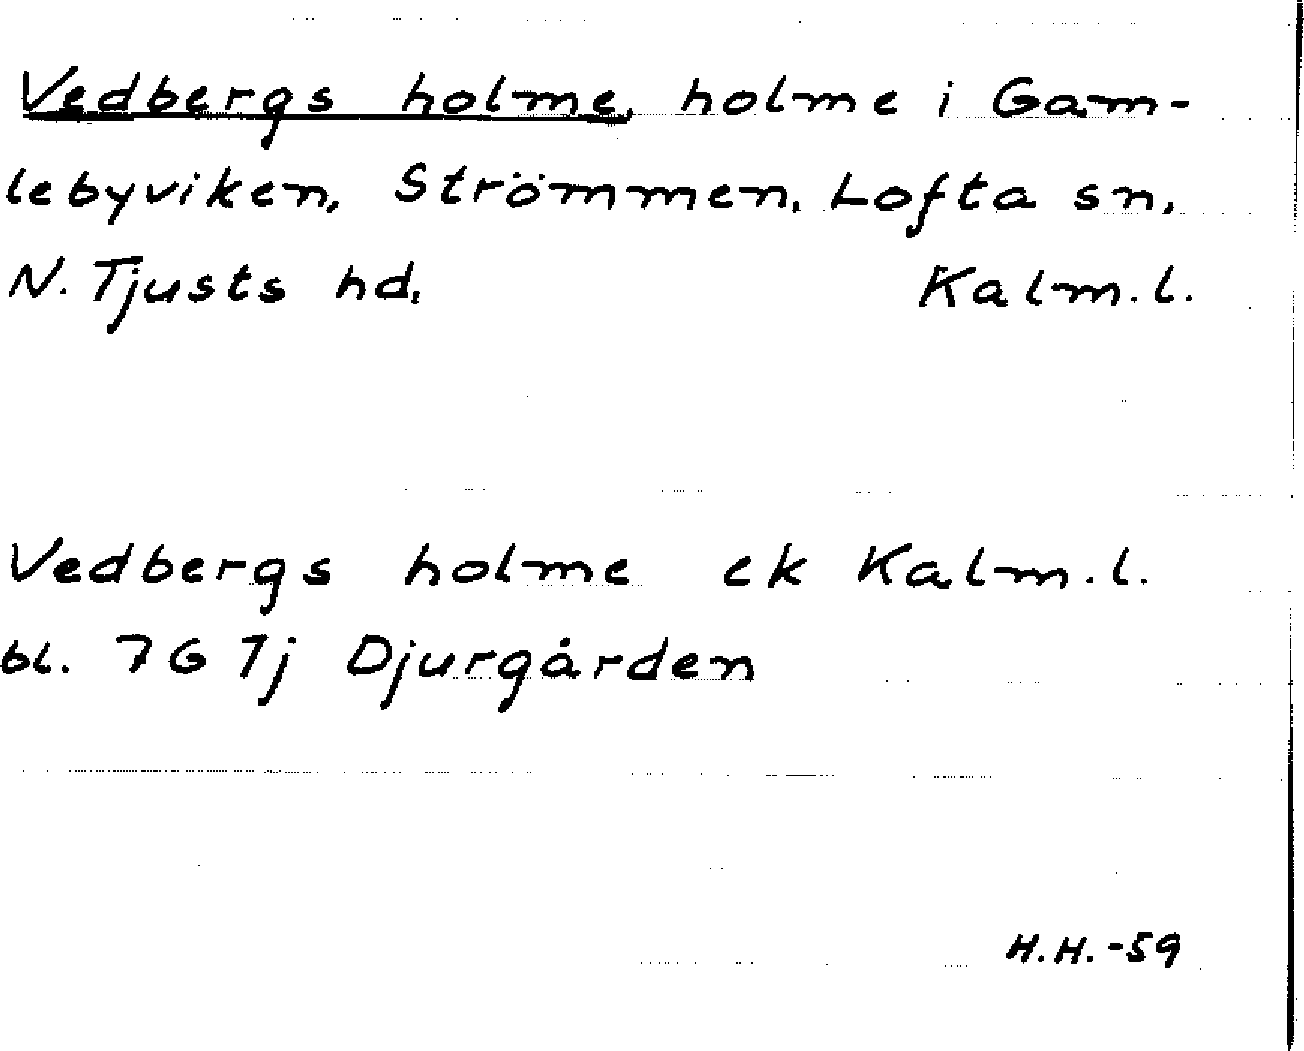 Vedbergs holme, holme i Gam-
lebyviken, Strömmen, Lofta sn,
N. Tjusts hd, Kalm.l.
Vedbergs holme ek Kalm.l.
bl. 7G 7j Djurgården
H.H.-59